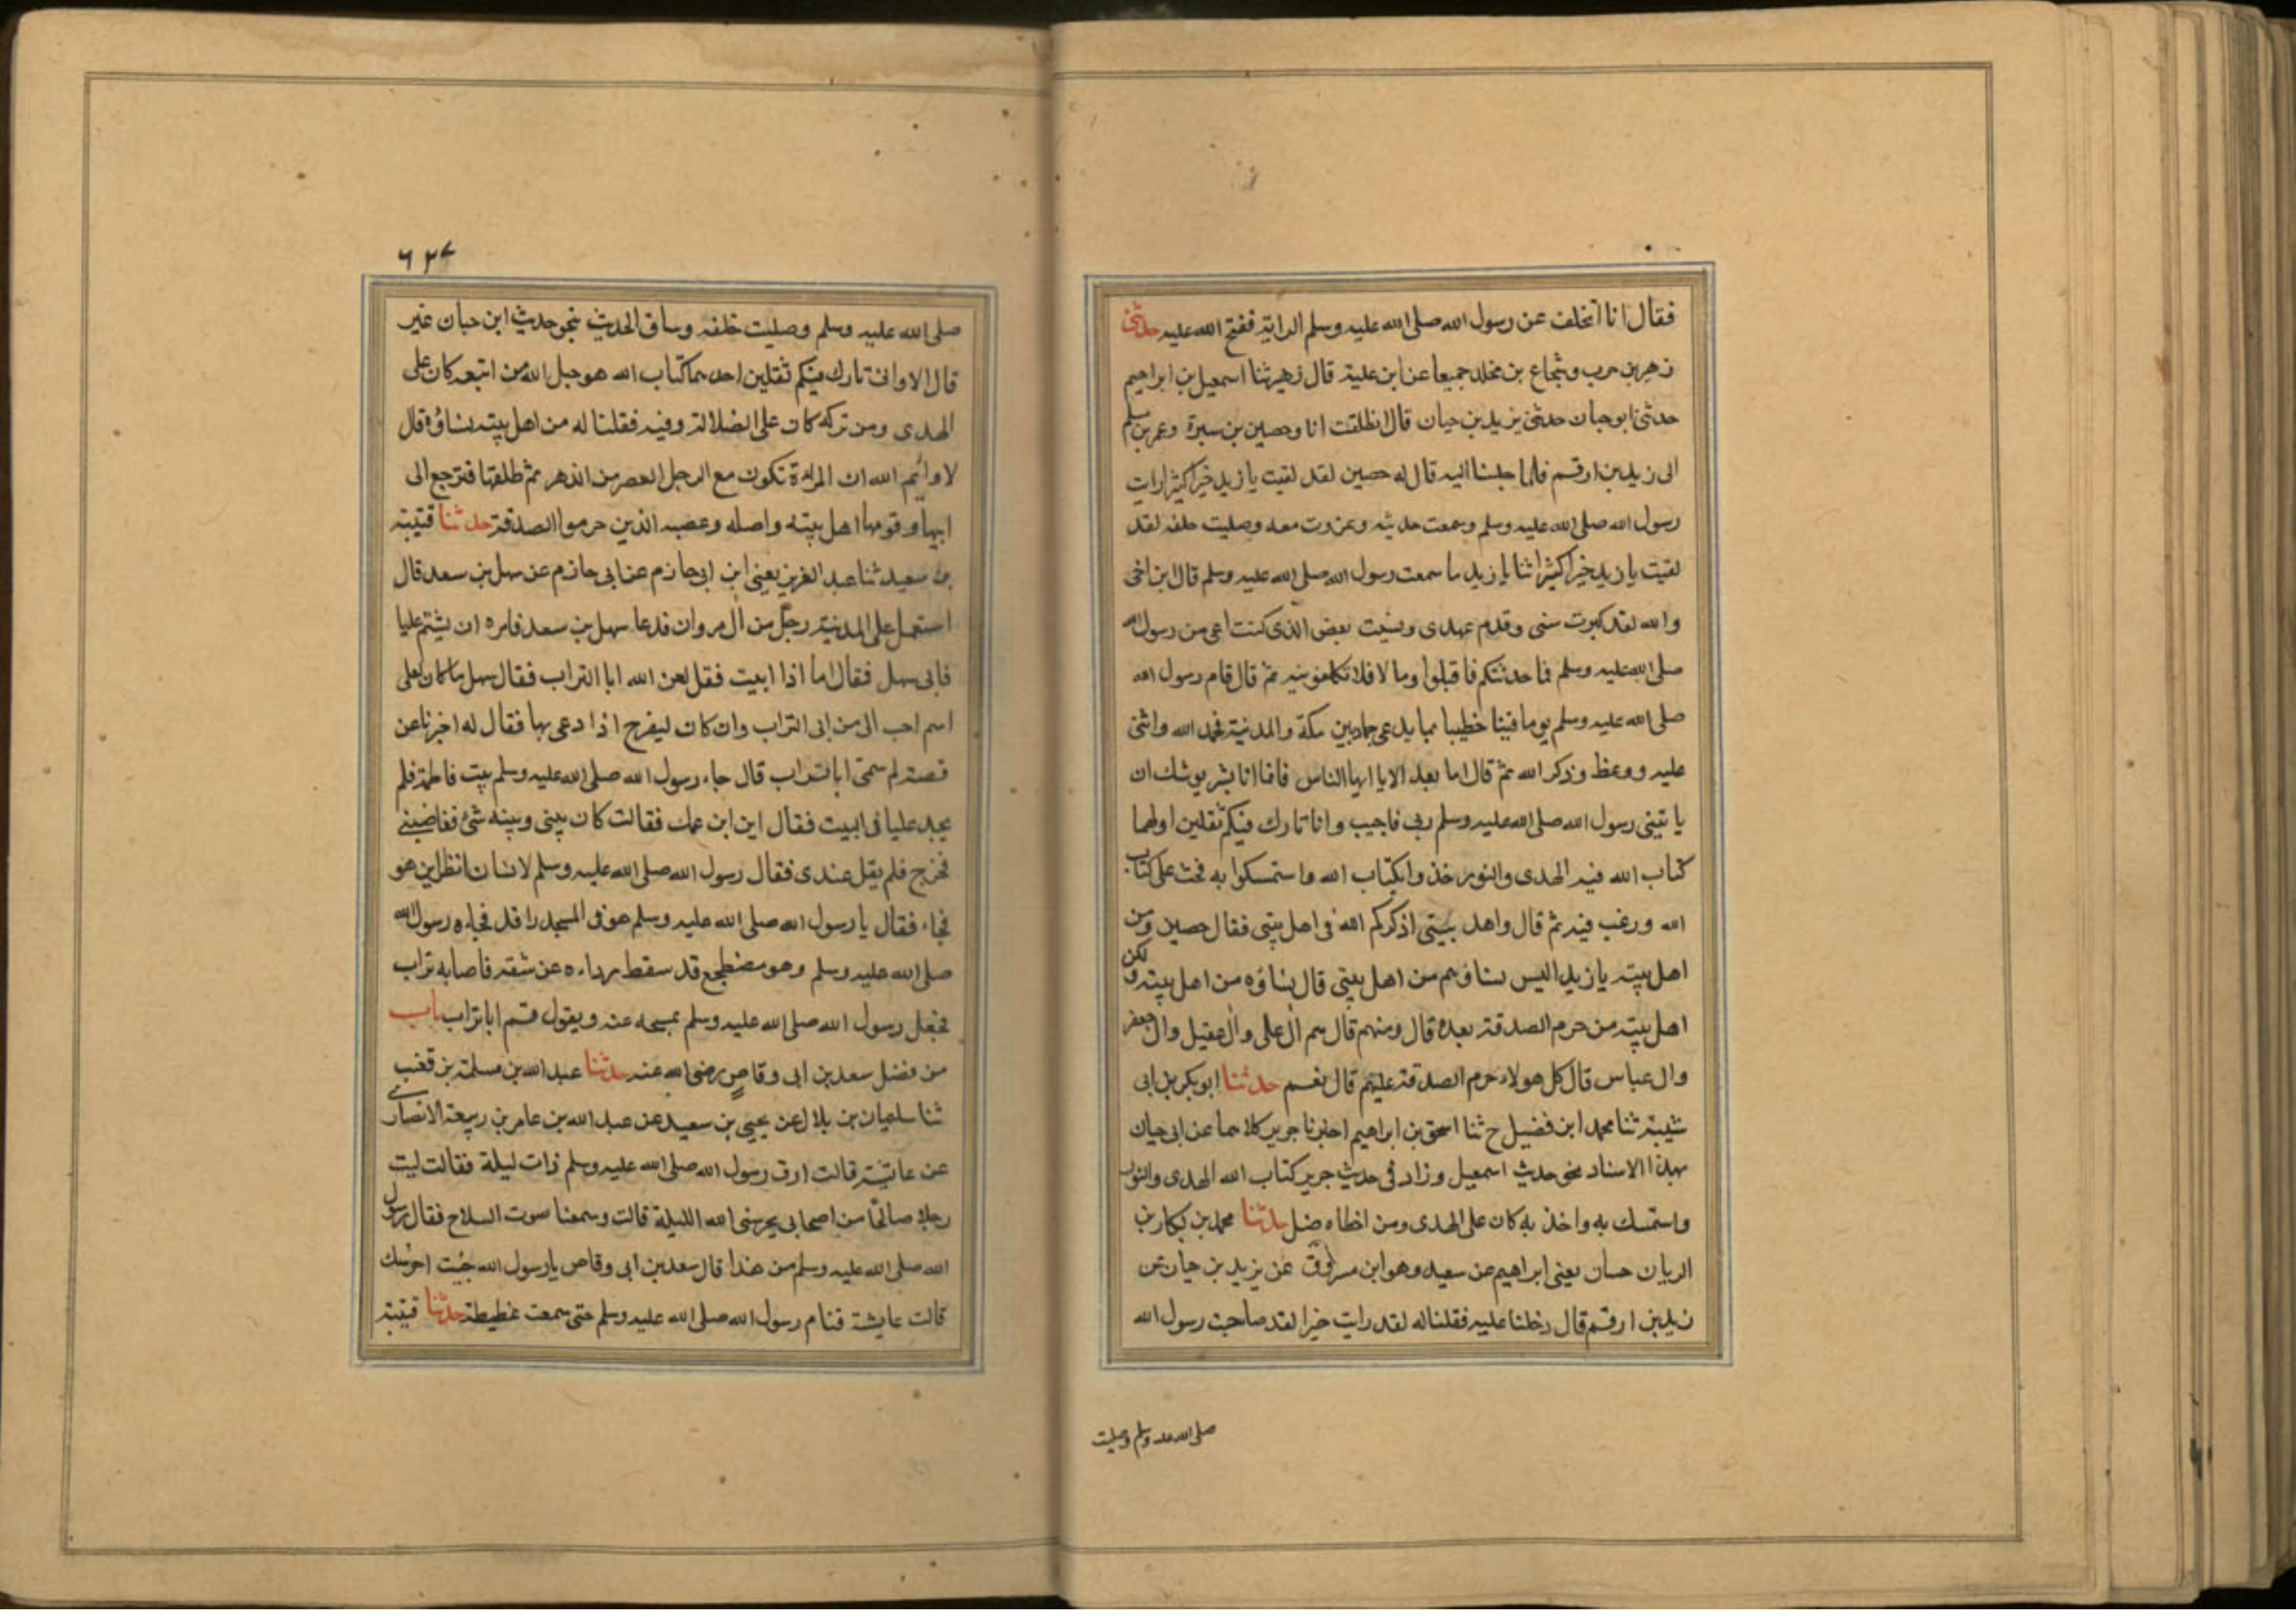 فقال انا اتخلف عن رسول الله صلى الله عليه وسلم الراية ففتح الله عليه حدثنى
زهير بن حرب وشجاع بن مخلد جميعا عن ابن علية قال زهير ثنا اسمعيل بن ابراهيم
حدثنى ابو حيان حدثنى يزيد بن حيان قال انطلقت انا وحصين بن سبرة وعمر بن مسلم
الى زيد بن ارقم فلما جلسنا اليه قال له حصين لقد لقيت يا زيد خيرا كثيرا رايت
رسول الله صلى الله عليه وسلم وسمعت حديثه وغزوت معه وصليت خلفه لقد
لقيت يا زيد خيرا كثيرا ثنا يا زيد ما سمعت رسول الله صلى الله عليه وسلم قال ابن اخى
والله لقد كبرت سنى وقدم عهدى ونسيت بعض الذى كنت اعى من رسول الله
صلى الله عليه وسلم فما حدثتكم فاقبلوا وما لا فلا تكلفونيه ثم قال قام رسول الله
صلى الله عليه وسلم يوما فينا خطيبا بما يدعى خما بين مكة والمدنية فحمد الله واثنى
عليه ووعظ وذكر الله ثم قال اما بعد الا يا ايها الناس فانما انا بشر يوشك ان
ياتينى رسول الله صلى الله عليه وسلم ربى فاجيب وانا تارك فيكم ثقلين اولهما
كتاب الله فيه الهدى والنور خذوا بكتاب الله واستمسكوا به فحث على كتاب
الله ورغب فيه ثم قال واهل بيتى اذكركم الله فى اهل بيتى فقال حصين ومن
اهل بيته يا زيد اليس نساؤهم من اهل بيتى قال نساؤه من اهل بيته ولكن
اهل بيته من حرم الصدقة بعده قال ومنهم قال هم ال على وال عقيل وال جعفر
وال عباس قال كل هولاء حرم الصدقة عليهم قال نعم حدثنا ابو بكر بن ابى
شيبة ثنا محمد ابن فضيل ح ثنا اسحق بن ابراهيم اخبرنا جرير كلاهما عن ابى حيان
بهذا الاسناد نحو حديث اسمعيل وزاد فى حديث جرير كتاب الله الهدى والنور
واستمسك به واخذ به كان على الهدى ومن اخطاه ضل حدثنا محمد بن بكار بن
الريان حسان يعنى ابراهيم عن سعيد وهو ابن مسروق عن يزيد بن حيان عن
زيد بن ارقم قال دخلنا عليه فقلنا له لقد رايت خيرا لقد صاحبت رسول الله
صلى الله عليه وسلم وصليت
٦٢٧
صلى الله عليه وسلم وصليت خلفه وساق الحديث بنحو حديث ابن حيان غير
قال الا وانى تارك فيكم ثقلين احدهما كتاب الله هو حبل الله من اتبعه كان على
الهدى ومن تركه كان على الضلالة وفيه فقلنا له من اهل بيته نساؤه قال
لا وايم الله ان المراة تكون مع الرجل العصر من الدهر ثم طلقها فترجع الى
ابيها وقومها اهل بيته واصله وعصبه الذين حرموا الصدقة حدثنا قتيبة
بن سعيد ثنا عبد العزيز يعنى ابن ابى حازم عن ابى حازم عن سهل بن سعد قال
استعمل على المدنية رجل من آل مروان فدعا سهل بن سعد فامره ان يشتم عليا
فابى سهل فقال اما اذا ابيت فقل لعن الله ابا التراب فقال سهل ما كان لعلى
اسم احب الى من ابى التراب وان كان ليفرح اذا دعى بها فقال له اخبرنا عن
قصته لم سمى ابا تراب قال جاء رسول الله صلى الله عليه وسلم بيت فاطمة فلم
يجد عليا فى البيت فقال اين ابن عمك فقالت كان بينى وبينه شئ فغاضبنى
فخرج فلم يقل عندى فقال رسول الله صلى الله عليه وسلم لانسان انظر اين هو
فجاء فقال يا رسول الله صلى الله عليه وسلم هو فى المسجد راقد فجاءه رسول الله
صلى الله عليه وسلم وهو مضطجع قد سقط رداءه عن شقه فاصابه تراب
فجعل رسول الله صلى الله عليه وسلم يمسحه عنه ويقول قم ابا تراب باب
من فضل سعد بن ابى وقاص رضى الله عنه حدثنا عبد الله بن مسلمة بن قعنب
ثنا سليمان بن بلال عن يحيى بن سعيد عن عبد الله بن عامر بن ربيعة الانصارى
عن عايشة قالت ارق رسول الله صلى الله عليه وسلم ذات ليلة فقالت ليت
رجلا صالحا من اصحابى يحرسنى الله الليلة قالت وسمعنا صوت السلاح فقال رسول
الله صلى الله عليه وسلم من هذا قال سعد بن ابى وقاص يا رسول الله جئت احرسك
قالت عايشة فنام رسول الله صلى الله عليه وسلم حتى سمعت غطيطة حدثنا قتيبة